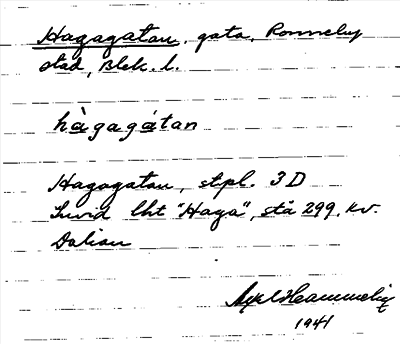 Hagagatan, gata, Ronneby
stad, Blek. l.
hàgagátan
Hagagatan, stpl. 3 D
Invid lht "Haga", stä 299, kv.
Dalian
Axel Hammelin
1941